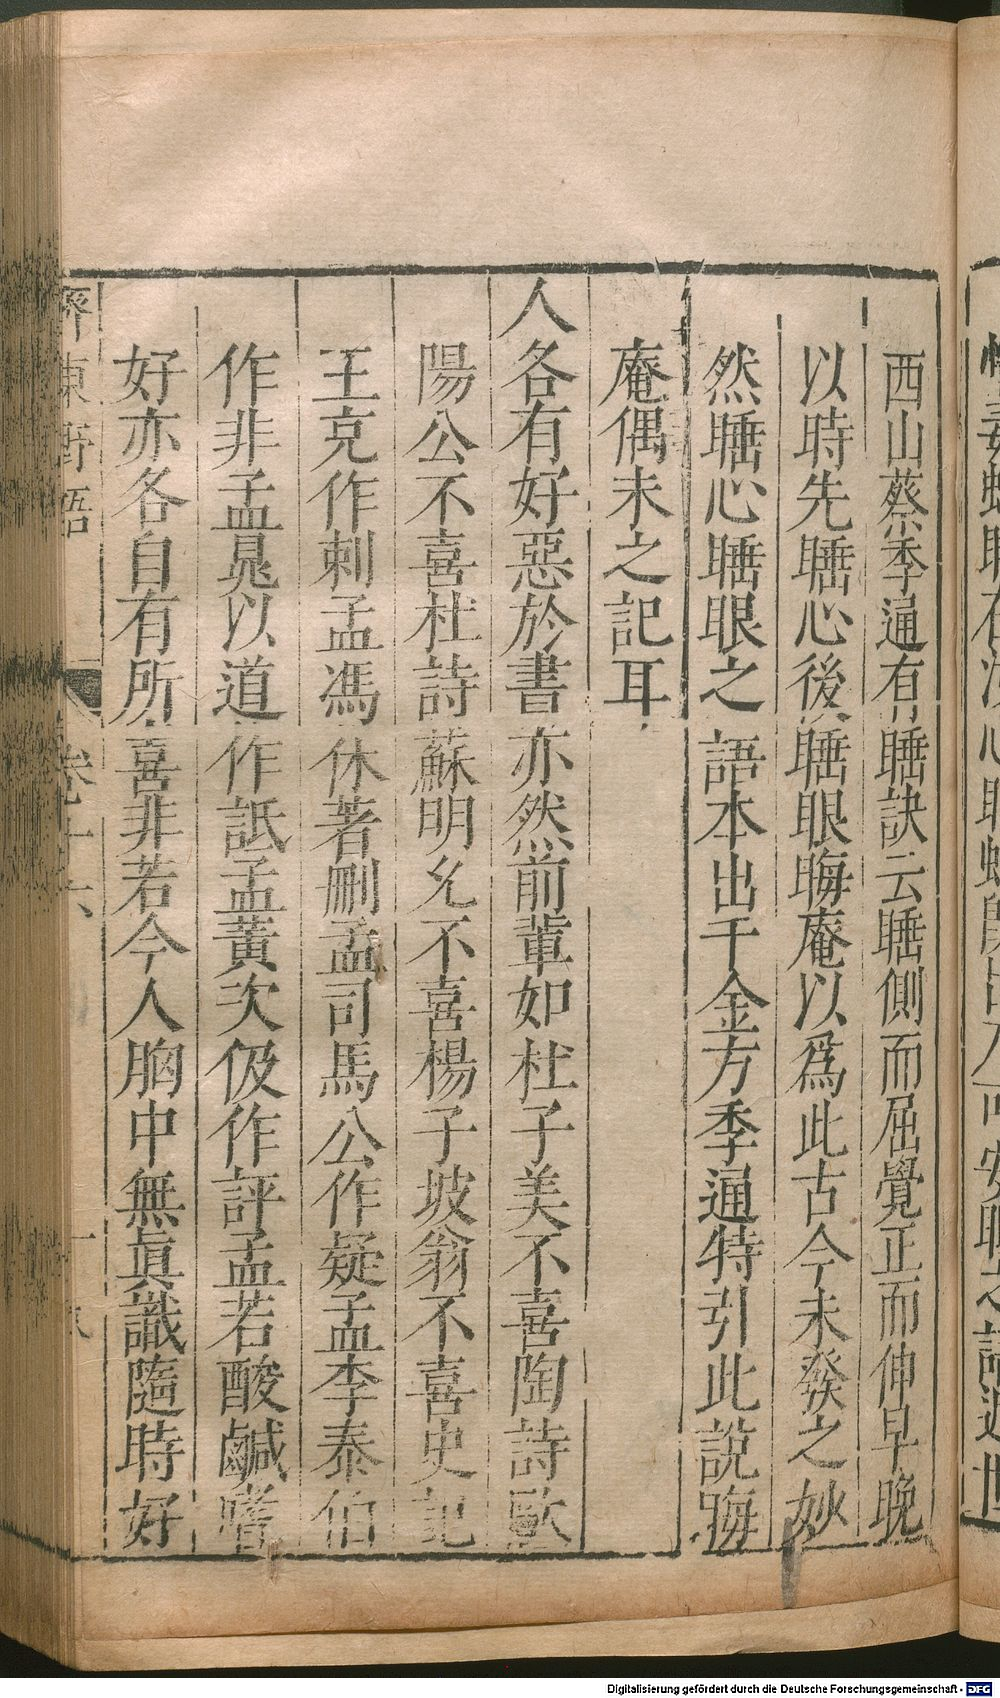 西山蔡季通有睡訣云睡側而屈覺正而伸早晚
以時先睡心後睡眼晦庵以爲此古今未發之妙
然睡心睡眼之語本出千金方季通特引此說晦
庵偶未之記耳
人各有好惡於書亦然前輩如杜子美不喜陶詩歐
陽公不喜杜詩蘇明允不喜楊子坡翁不喜史記
王充作刺孟馮休著刪孟司馬公作疑孟李泰伯
作非孟晁以道作詆孟黃次伋作評孟若酸鹹嗜
好亦各自有所喜非若今人胸中無眞識隨時好
齊東野語 卷十六
Digitalisierung gefördert durch die Deutsche Forschungsgemeinschaft - DFG